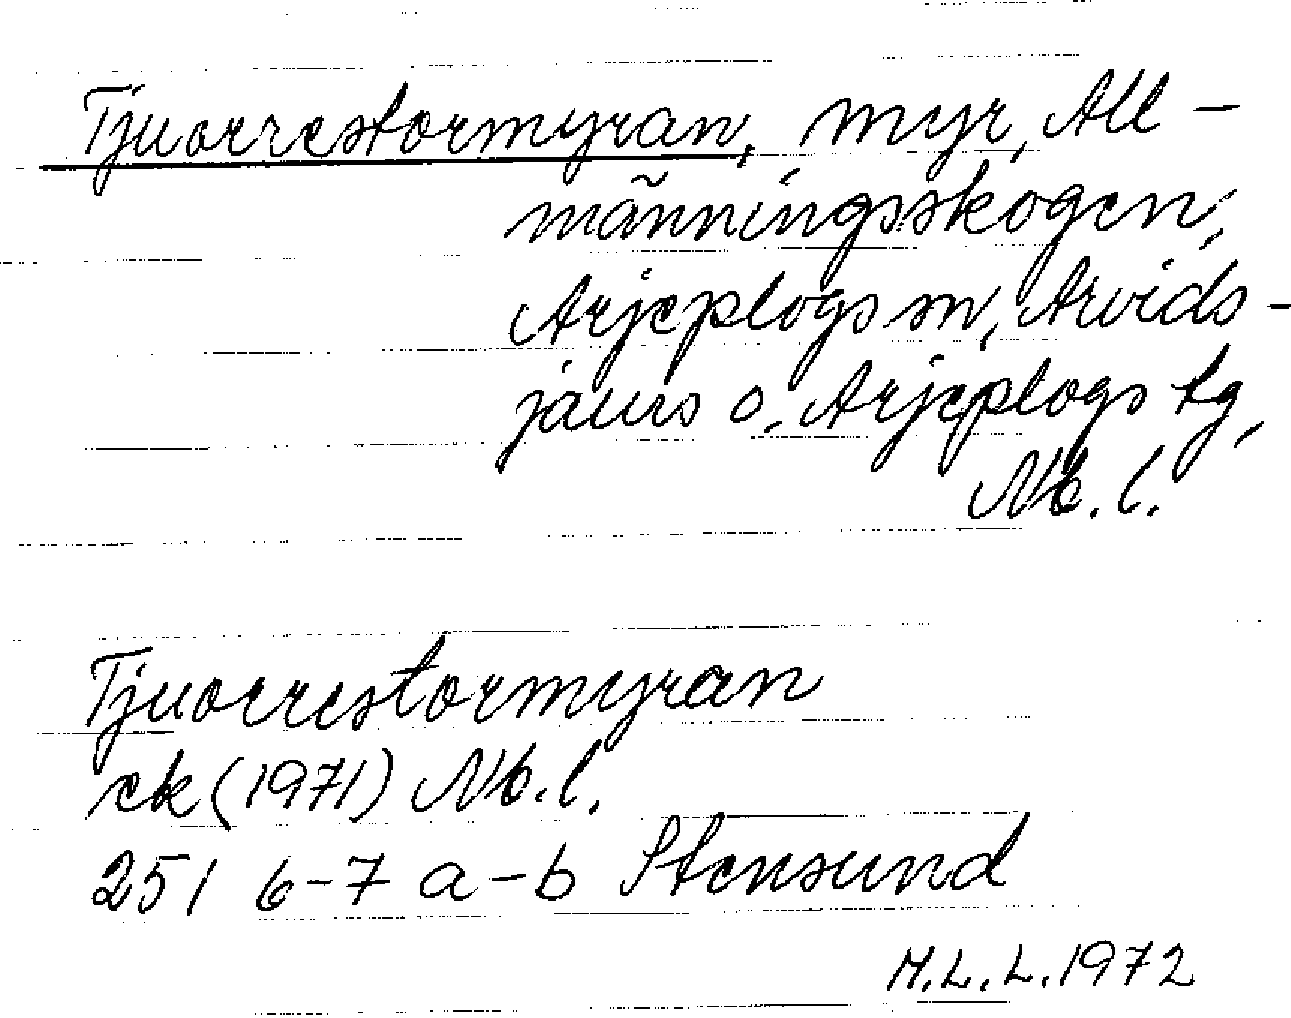 Tjuorrestormyran, myr, All-
männingsskogen,
Arjeplogs sn, Arvids-
jaurs o. Arjeplogs tg,
Nb. l.
Tjuorrestormyran
ek (1971) Nb. l.
25 I 6-7 a-b Stensund
M.L.L. 1972